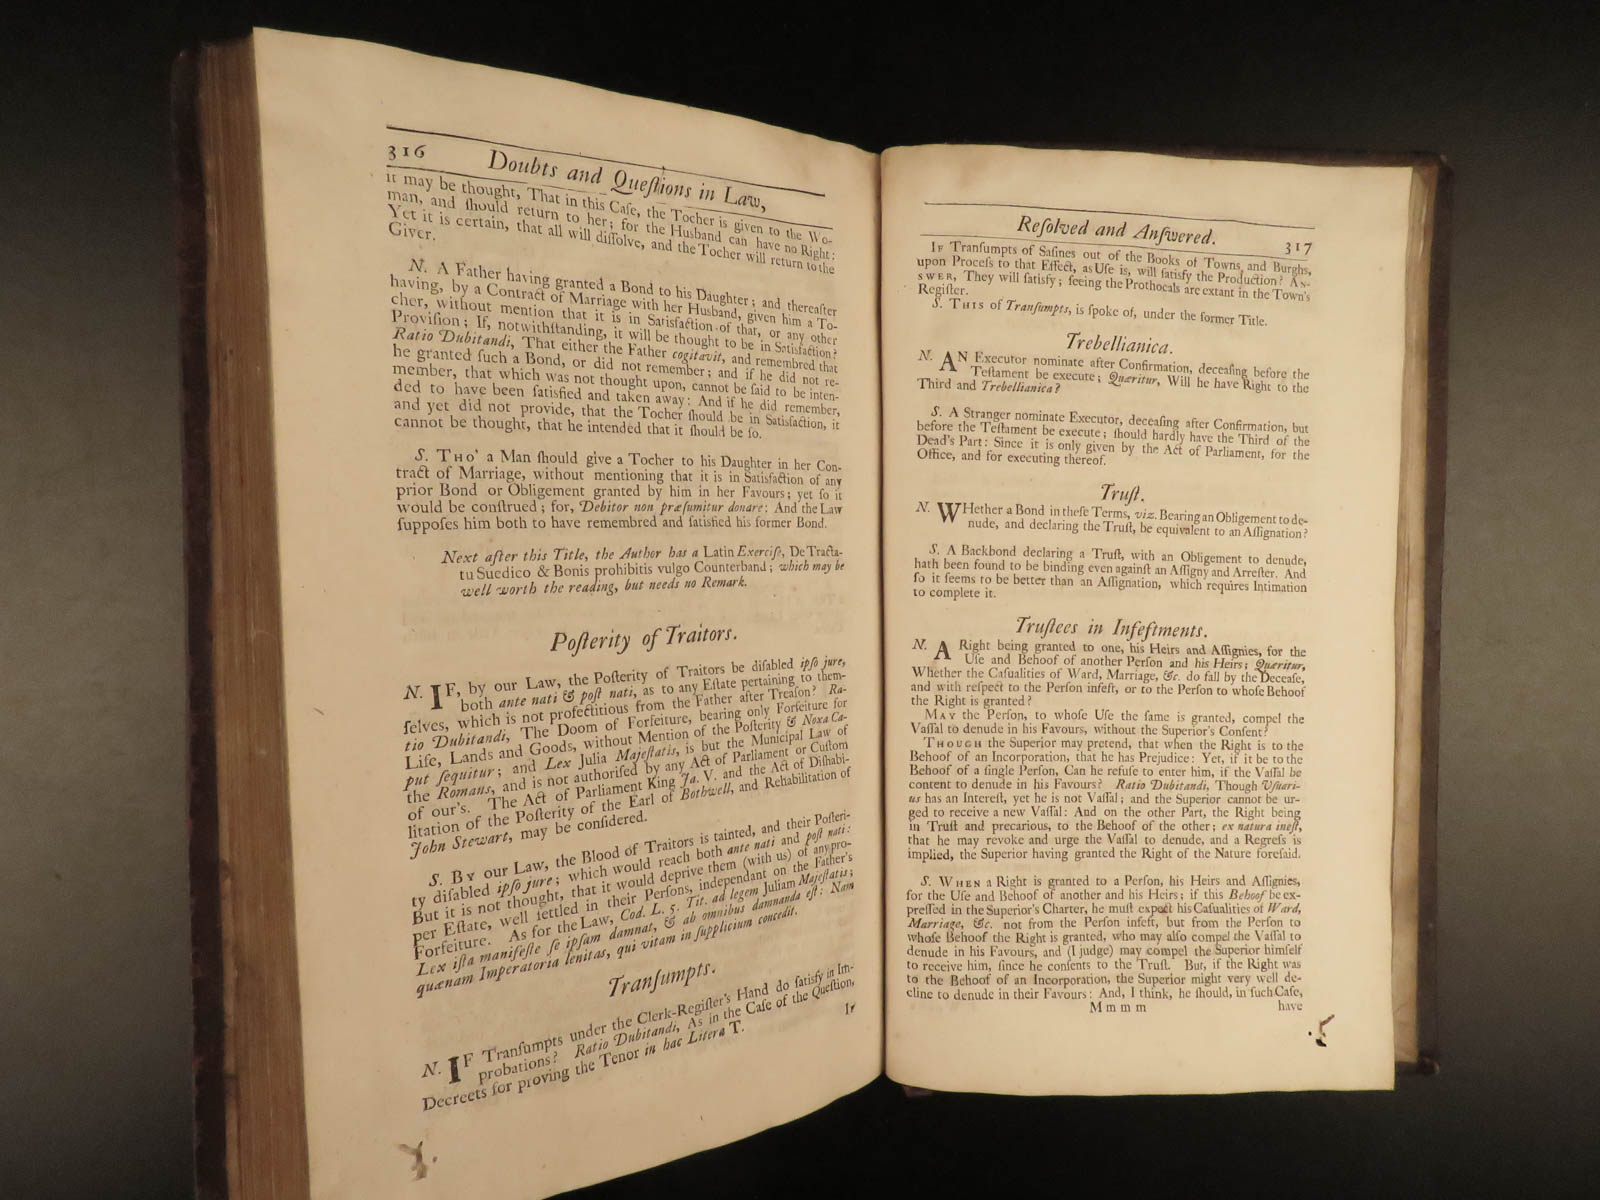 316 Doubts and Queſtions in Law,
it may be thought, That in this Caſe, the Tocher is given to the Wo-
man, and ſhould return to her; for the Husband can have no Right:
Yet it is certain, that all will diſſolve, and the Tocher will return to the
Giver.
N. A Father having granted a Bond to his Daughter; and thereafter
having, by a Contract of Marriage with her Husband, given him a To-
cher, without mention that it is in Satisfaction of that, or any other
Proviſion; If, notwithſtanding, it will be thought to be in Satisfaction?
Ratio Dubitandi, That either the Father cogitavit, and remembred that
he granted ſuch a Bond, or did not remember; and if he did not re-
member, that which was not thought upon, cannot be ſaid to be inten-
ded to have been ſatisfied and taken away: And if he did remember,
and yet did not provide, that the Tocher ſhould be in Satisfaction, it
cannot be thought, that he intended that it ſhould be ſo.
S. THO' a Man ſhould give a Tocher to his Daughter in her Con-
tract of Marriage, without mentioning that it is in Satisfaction of any
prior Bond or Obligement granted by him in her Favours; yet ſo it
would be conſtrued; for, Debitor non præſumitur donare: And the Law
ſuppoſes him both to have remembred and ſatisfied his former Bond.
Next after this Title, the Author has a Latin Exerciſe, De Tracta-
tu Suedico & Bonis prohibitis vulgo Counterband; which may be
well worth the reading, but needs no Remark.
Poſterity of Traitors.
N. IF, by our Law, the Poſterity of Traitors be diſabled ipſo jure,
both ante nati & poſt nati, as to any Eſtate pertaining to them-
ſelves, which is not profectitious from the Father after Treaſon? Ra-
tio Dubitandi, The Doom of Forfeiture, bearing only Forfeiture for
Life, Lands and Goods, without Mention of the Poſterity & Noxa Ca-
put ſequitur; and Lex Julia Majeſtatis, is but the Municipal Law of
the Romans, and is not authoriſed by any Act of Parliament or Cuſtom
of our's. The Act of Parliament King Ja. V. and the Act of Diſhabi-
litation of the Poſterity of the Earl of Bothwell, and Rehabilitation of
John Stewart, may be conſidered.
S. BY our Law, the Blood of Traitors is tainted, and their Poſteri-
ty diſabled ipſo jure; which would reach both ante nati and poſt nati:
But it is not thought, that it would deprive them (with us) of any pro-
per Eſtate, well ſettled in their Perſons, independant on the Father's
Forfeiture. As for the Law, Cod. L. 5. Tit. ad legem Juliam Majeſtatis;
Lex iſta manifeſte ſe ipſam damnat, & ab omnibus damnanda eſt: Nam
quænam Imperatoria lenitas, qui vitam in ſupplicium concedit.
Tranſumpts.
N. IF Tranſumpts under the Clerk-Regiſter's Hand do ſatisfy in Im-
probations? Ratio Dubitandi, As in the Caſe of the Queſtion,
Decreets for proving the Tenor in hac Litera T.
If
Reſolved and Anſwered. 317
IF Tranſumpts of Saſines out of the Books of Towns and Burghs,
upon Proceſs to that Effect, as Uſe is, will ſatisfy the Production? AN-
SWER, They will ſatisfy; ſeeing the Prothocals are extant in the Town's
Regiſter.
S. THIS of Tranſumpts, is ſpoke of, under the former Title.
Trebellianica.
N. AN Executor nominate after Confirmation, deceaſing before the
Teſtament be execute; Quæritur, Will he have Right to the
Third and Trebellianica?
S. A Stranger nominate Executor, deceaſing after Confirmation, but
before the Teſtament be execute; ſhould hardly have the Third of the
Dead's Part: Since it is only given by the Act of Parliament, for the
Office, and for executing thereof.
Truſt.
N. WHether a Bond in theſe Terms, viz. Bearing an Obligement to de-
nude, and declaring the Truſt, be equivalent to an Aſſignation?
S. A Backbond declaring a Truſt, with an Obligement to denude,
hath been found to be binding even againſt an Aſſigny and Arreſter. And
ſo it ſeems to be better than an Aſſignation, which requires Intimation
to complete it.
Truſtees in Infeftments.
N. A Right being granted to one, his Heirs and Aſſignies, for the
Uſe and Behoof of another Perſon and his Heirs; Quæritur,
Whether the Caſualities of Ward, Marriage, &c. do fall by the Deceaſe,
and with reſpect to the Perſon infeft, or to the Perſon to whoſe Behoof
the Right is granted?
MAY the Perſon, to whoſe Uſe the ſame is granted, compel the
Vaſſal to denude in his Favours, without the Superior's Conſent?
THOUGH the Superior may pretend, that when the Right is to the
Behoof of an Incorporation, that he has Prejudice: Yet, if it be to the
Behoof of a ſingle Perſon, Can he refuſe to enter him, if the Vaſſal be
content to denude in his Favours? Ratio Dubitandi, Though Uſuari-
us has an Intereſt, yet he is not Vaſſal; and the Superior cannot be ur-
ged to receive a new Vaſſal: And on the other Part, the Right being
in Truſt and precarious, to the Behoof of the other; ex natura ineſt,
that he may revoke and urge the Vaſſal to denude, and a Regreſs is
implied, the Superior having granted the Right of the Nature foreſaid.
S. WHEN a Right is granted to a Perſon, his Heirs and Aſſignies,
for the Uſe and Behoof of another and his Heirs; if this Behoof be ex-
preſſed in the Superior's Charter, he muſt expect his Caſualities of Ward,
Marriage, &c. not from the Perſon infeft, but from the Perſon to
whoſe Behoof the Right is granted, who may alſo compel the Vaſſal to
denude in his Favours, and (I judge) may compel the Superior himſelf
to receive him, ſince he conſents to the Truſt. But, if the Right was
to the Behoof of an Incorporation, the Superior might very well de-
cline to denude in their Favours: And, I think, he ſhould, in ſuch Caſe,
Mmmm have